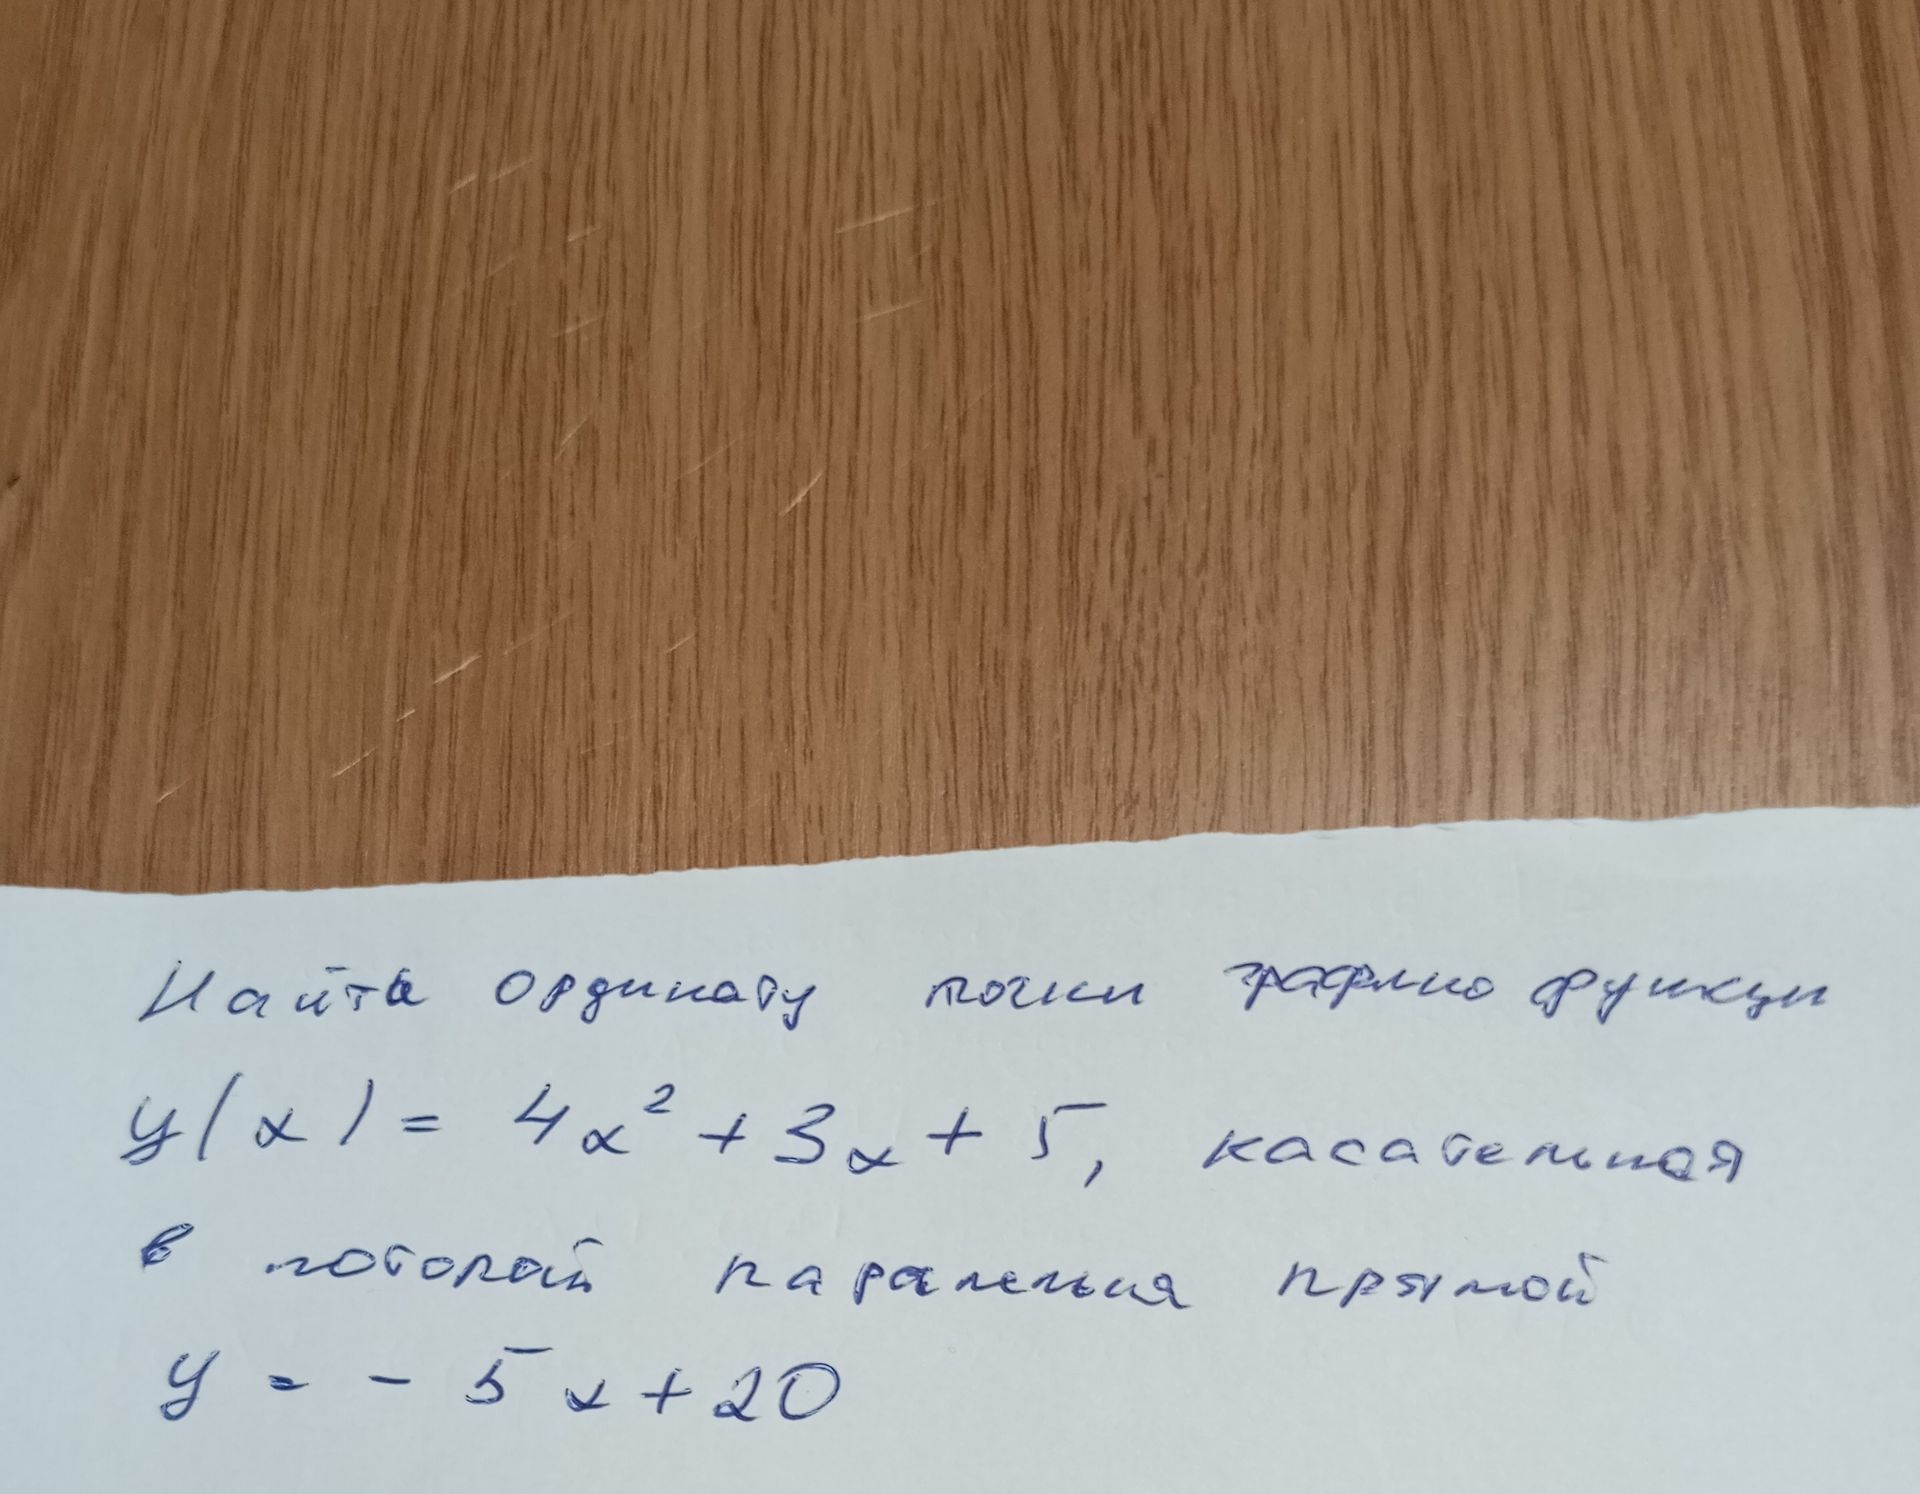 Найти ординату точки графика функции
y(x) = 4x² + 3x + 5, касательная
в которой паралельна прямой
y = - 5x + 20